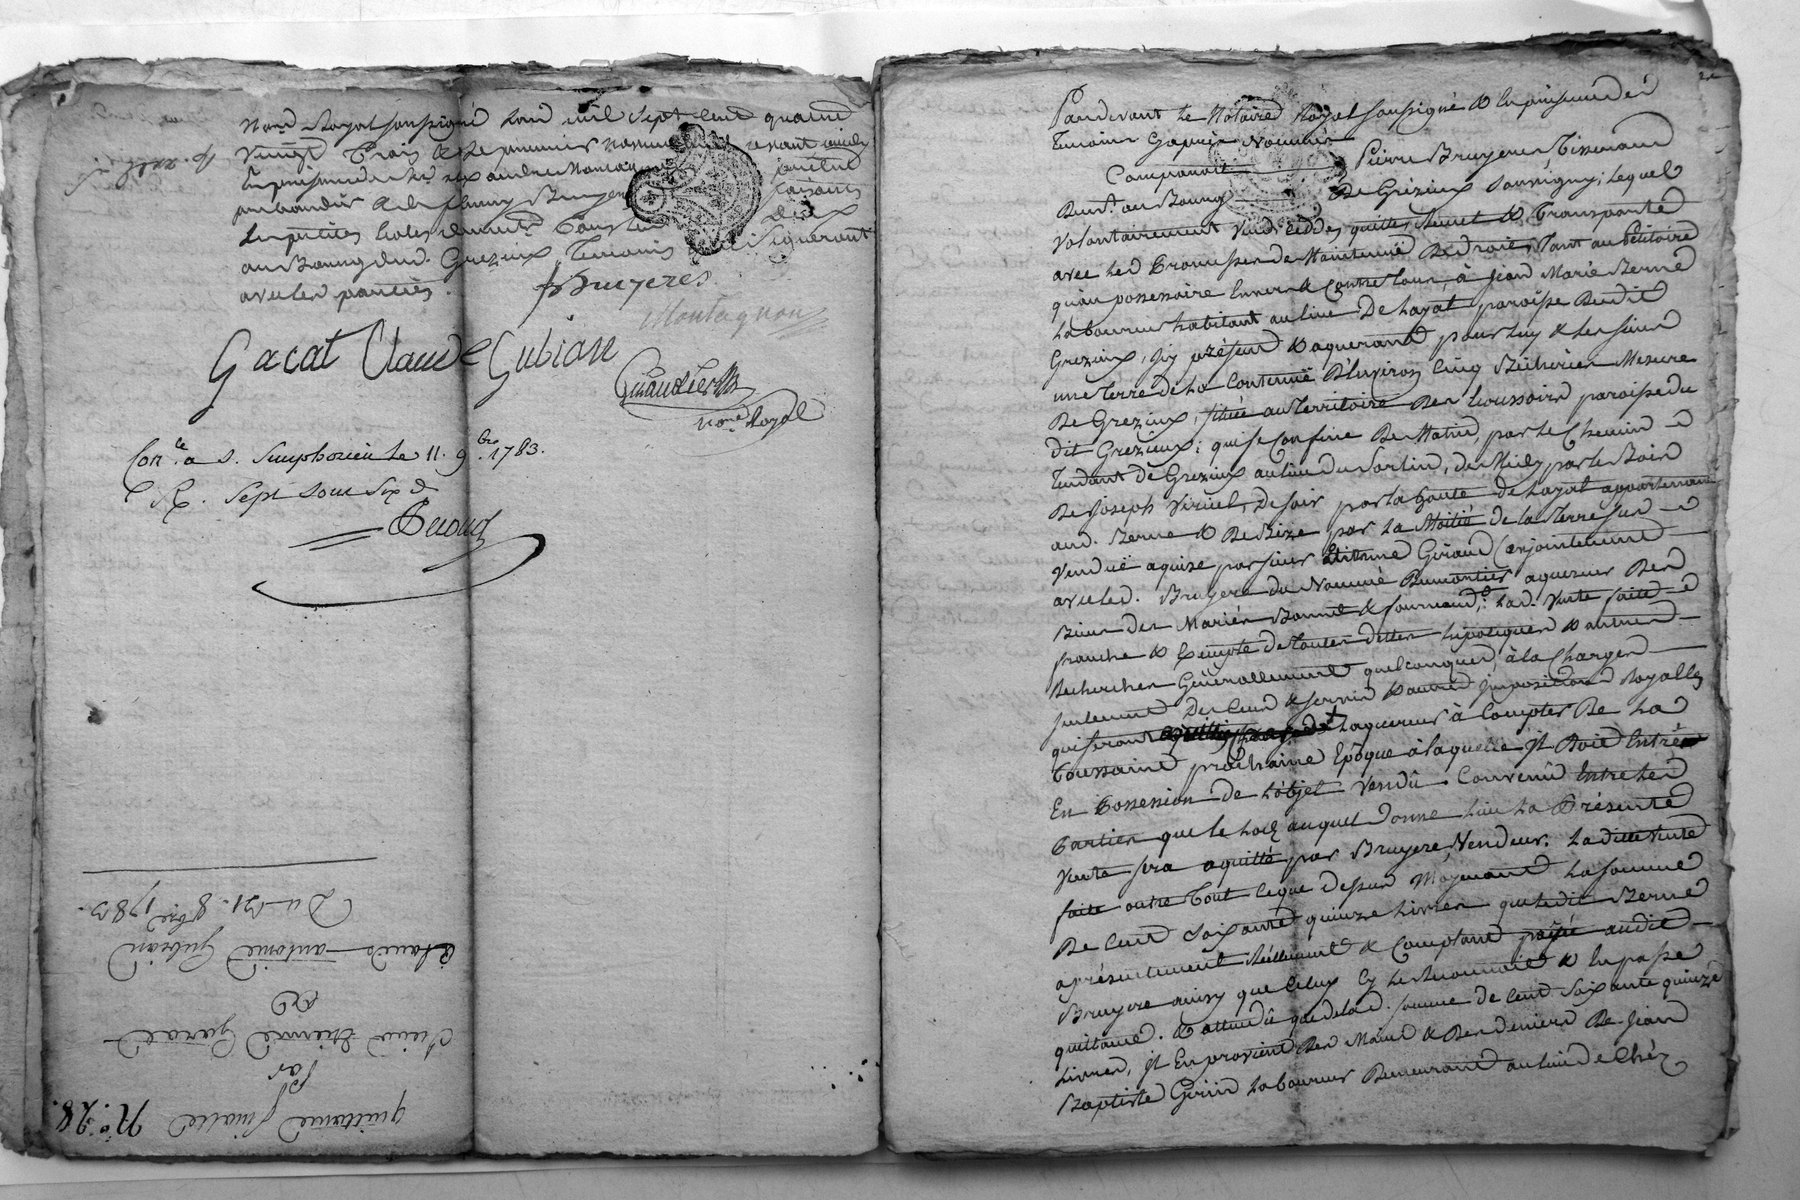 nore Royal soussigné Lan mil sept cent quatre
Vingt Trois & le premier novembre avant midy
En presence de Sr. alexandre Montagnon
& de fleury Bruyere faisants
Les petites Ecoles Demts. Tous deux
au Bourg dud. Grezieux Temoins Signerant
avec les parties.
Bruyeres
Montagnon
Gacat Claude Gubian
nore. Royal
Conle. a S. Simphorien le 11. 9bre. 1783.
R. Sept sous six d
quittance finale
N.° 28.
Par
Sieur Etienne Gacat
a
Claude antoine Gubian
Du 31. 8bre 1783.
Pardevant Le Notaire Royal soussigné & En présence des
Temoins Cy après Nommés
Comparoit Pierre Bruyere Tisserand
Demt. au Bourg De Grézieux Souvigny; Lequel
Volontairement Vend, cedde, quitte, Remet & Transporte
avec les Promesses de Maintenüe De droit, Tant au Pétitoire
qu'au possessoire Envers & Contre tous, à Jean Marie Berne
Laboureur habitant au lieu De Layat paroisse dudit
Grezieux, ici présent & aquerant pour luy & les siens
une Terre de La Contenüe D'Environ Cinq Bicherées Mesure
De Grezieux, située au Territoire Des paroisse du
dit Grezieux; qui se Confine De Matin, par le Chemin
Tendant de Grezieux au lieu du Sortin, de Midy par le Bois
De Joseph Viricel, De soir par la Goute de Layat appartenant
aud. Berne & De Bize par La Moitié de la Terre sus
Vendüe aquise par sieur Etienne Giraud Conjointement
avec led. Bruyere du Nommé Dumontier aquereur Des
Biens des Mariés Bonnet & fournand; Lad. Vente faite
franche & Exempte de toutes dettes hipoteques & autres
Recherches Généralement quelconques, à la Charge
seulement Des Cens & servis & autres Impositions Royalles
qui seront Laquereur à Compter De La
Toussaint prochaine Epoque à laquelle il Doit Entrer
En Possession de L'objet Vendû. Convenû Entre les
Parties que le Lod auquel Donne lieu La Présente
Vente sera aquitté par Bruyere Vendeur. La ditte Vente
faite outre Tout ce que dessus Moyenant La somme
De Cent Soixante quinze Livres que ledit Berne
a présentement Réellement & Comptant payée audit
Bruyere ainsy que Celui Cy le Reconnoit & En passe
quittance. & attendû que de la d. somme de Cent Soixante quinze
Livres, il En provient Des Mains & Des deniers De Jean
Baptiste Laboureur Demeurant au lieu de Chez